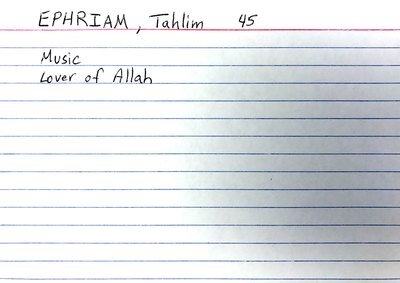 EPHRIAM, Tahlim 45
Music
Lover of Allah